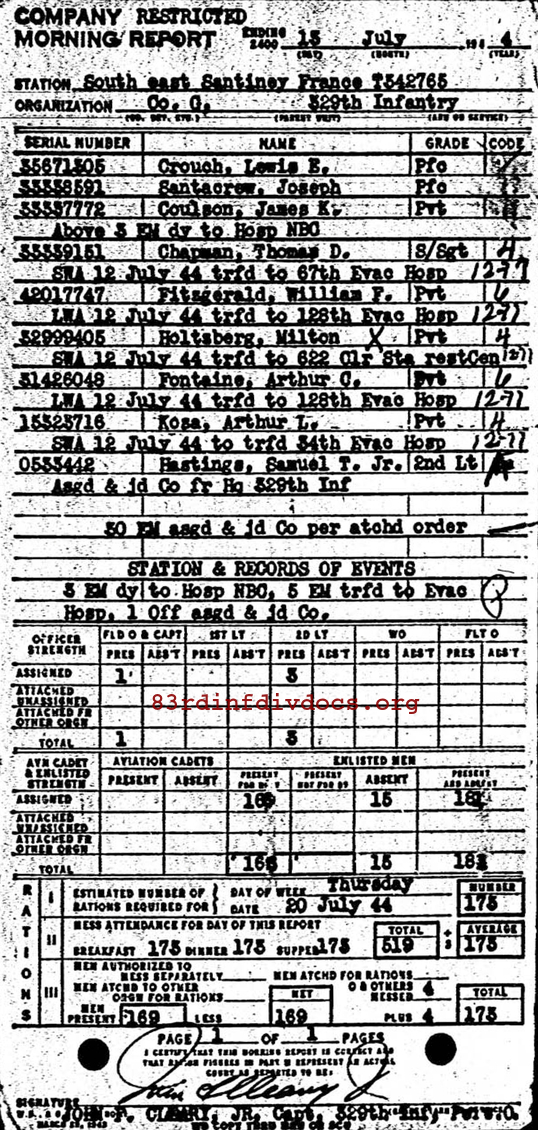 COMPANY RESTRICTED
MORNING REPORT ENDING 2400 15 July 194 4
(DAY) (MONTH) (YEAR)
STATION South east Santiney France T342765
ORGANIZATION Co. G. 329th Infantry
(CO. DET. ETC.) (PARENT UNIT) (ARM OR SERVICE)
SERIAL NUMBER NAME GRADE CODE
35671305 Crouch, Lewis E. Pfc
33338591 Santacrew, Joseph Pfc
33337772 Coulson, James K. Pvt
Above 3 EM dy to Hosp NBC
33339151 Chapman, Thomas D. S/Sgt 4
SWA 12 July 44 trfd to 67th Evac Hosp 12-77
42017747 Fitzgerald, William F. Pvt 6
LWA 12 July 44 trfd to 128th Evac Hosp 12-77
32999405 Holtsberg, Milton X Pvt 4
SWA 12 July 44 trfd to 622 Clr Sta restCen
31426048 Fontaine, Arthur C. Pvt 6
LWA 12 July 44 trfd to 128th Evac Hosp 12-77
15323716 Kosa, Arthur L. Pvt 4
SWA 12 July 44 to trfd 34th Evac Hosp 12-77
0533442 Hastings, Samuel T. Jr. 2nd Lt
Asgd & jd Co fr Hq 329th Inf
30 EM asgd & jd Co per atchd order
STATION & RECORDS OF EVENTS
3 EM dy to Hosp NBC, 5 EM trfd to Evac
Hosp, 1 Off asgd & jd Co.
OFFICER STRENGTH FLD O & CAPT 1ST LT 2D LT WO FLT O
PRES ABS'T PRES ABS'T PRES ABS'T PRES ABS'T PRES ABS'T
ASSIGNED 1 3
ATTACHED UNASSIGNED
ATTACHED FR OTHER ORGN
83rdinfdivdocs.org
TOTAL 1 3
AVN CADET & ENLISTED STRENGTH AVIATION CADETS ENLISTED MEN
PRESENT ABSENT PRESENT FOR DUTY PRESENT NOT FOR DY ABSENT PRESENT AND ABSENT
ASSIGNED 15
ATTACHED UNASSIGNED
ATTACHED FR OTHER ORGN
TOTAL 15
RATIONS
I ESTIMATED NUMBER OF RATIONS REQUIRED FOR DAY OF WEEK Thursday NUMBER
DATE 20 July 44 173
II MESS ATTENDANCE FOR DAY OF THIS REPORT TOTAL ÷ 3 AVERAGE
BREAKFAST 173 DINNER 173 SUPPER 173 519 173
III MEN AUTHORIZED TO MESS SEPARATELY MEN ATCHD FOR RATIONS
MEN ATCHD TO OTHER ORGN FOR RATIONS NET O & OTHERS MESSED 4 TOTAL
MEN PRESENT 169 LESS 169 PLUS 4 173
PAGE 1 OF 1 PAGES
I CERTIFY THAT THIS MORNING REPORT IS CORRECT AND
THAT RATION FIGURES IN PART II REPRESENT AN ACTUAL
COUNT AS REPORTED TO ME:
SIGNATURE
JOHN F. CLEARY, JR, Capt, 329th Inf,